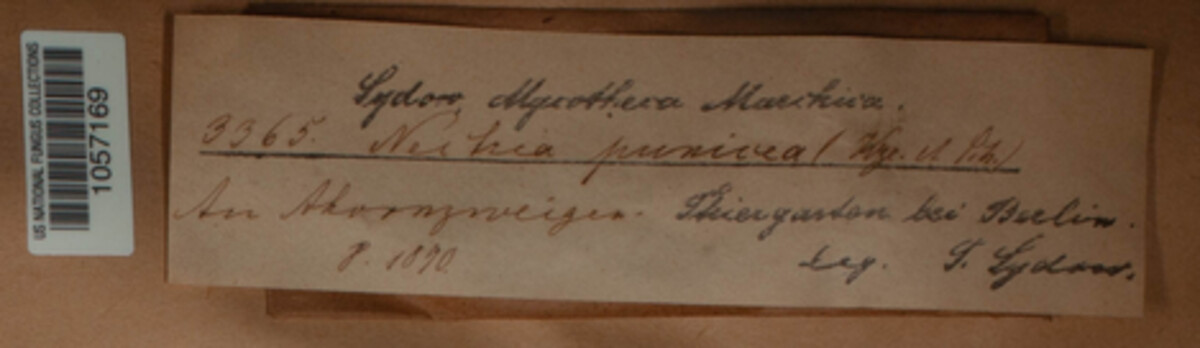 US NATIONAL FUNGUS COLLECTIONS
1057169
Sydow, Mycotheca Marchica.
3365. Nectria punicea
An Ahornzweigen. Thiergarten bei Berlin.
8. 1890. Leg. P. Sydow.